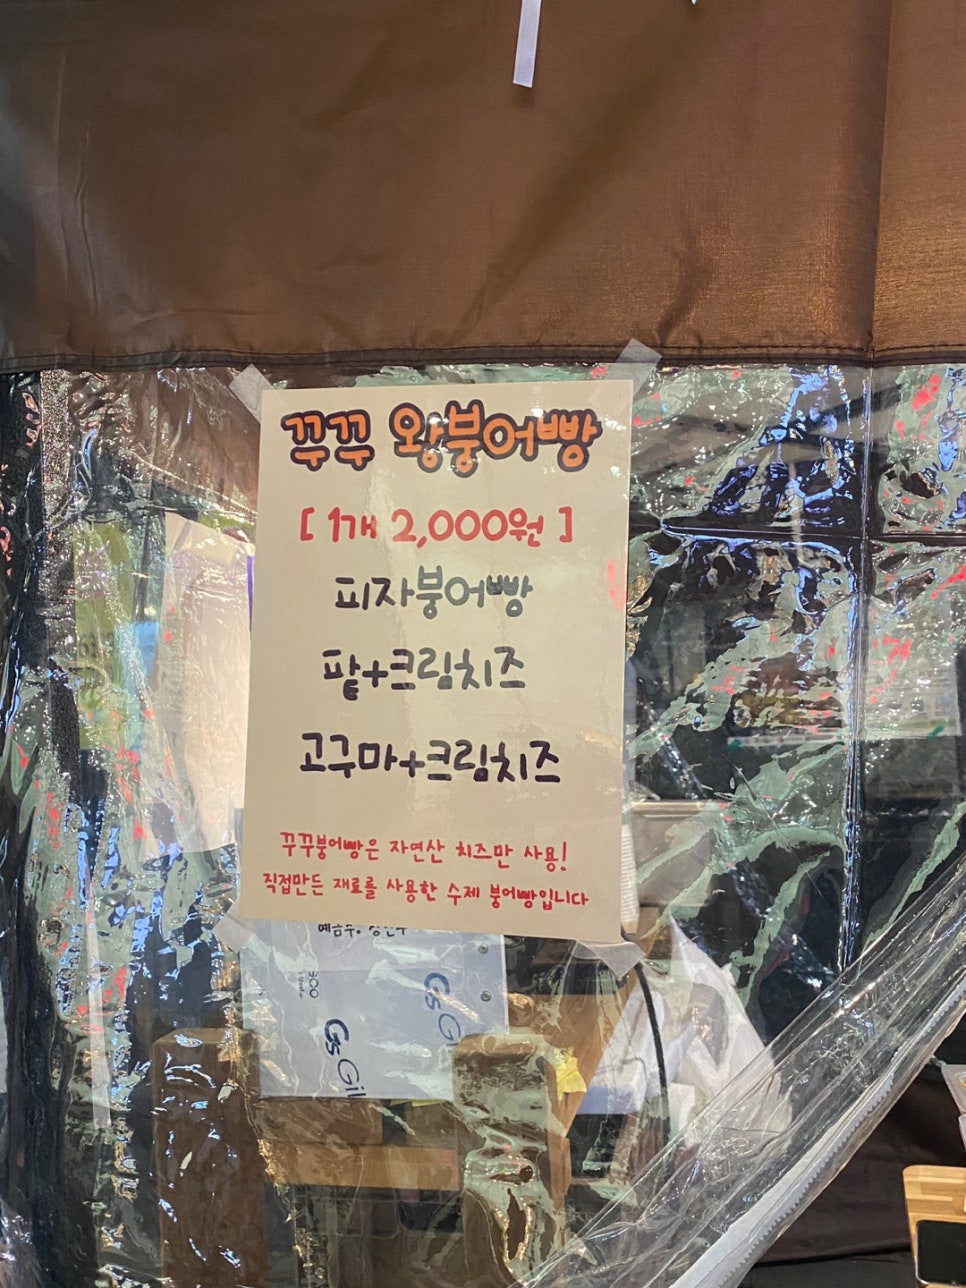 꾸꾸 왕붕어빵
[ 1개 2,000원 ]
피자붕어빵
팥+크림치즈
고구마+크림치즈
꾸꾸붕어빵은 자연산 치즈만 사용!
직접만든 재료를 사용한 수제 붕어빵입니다
예금주.